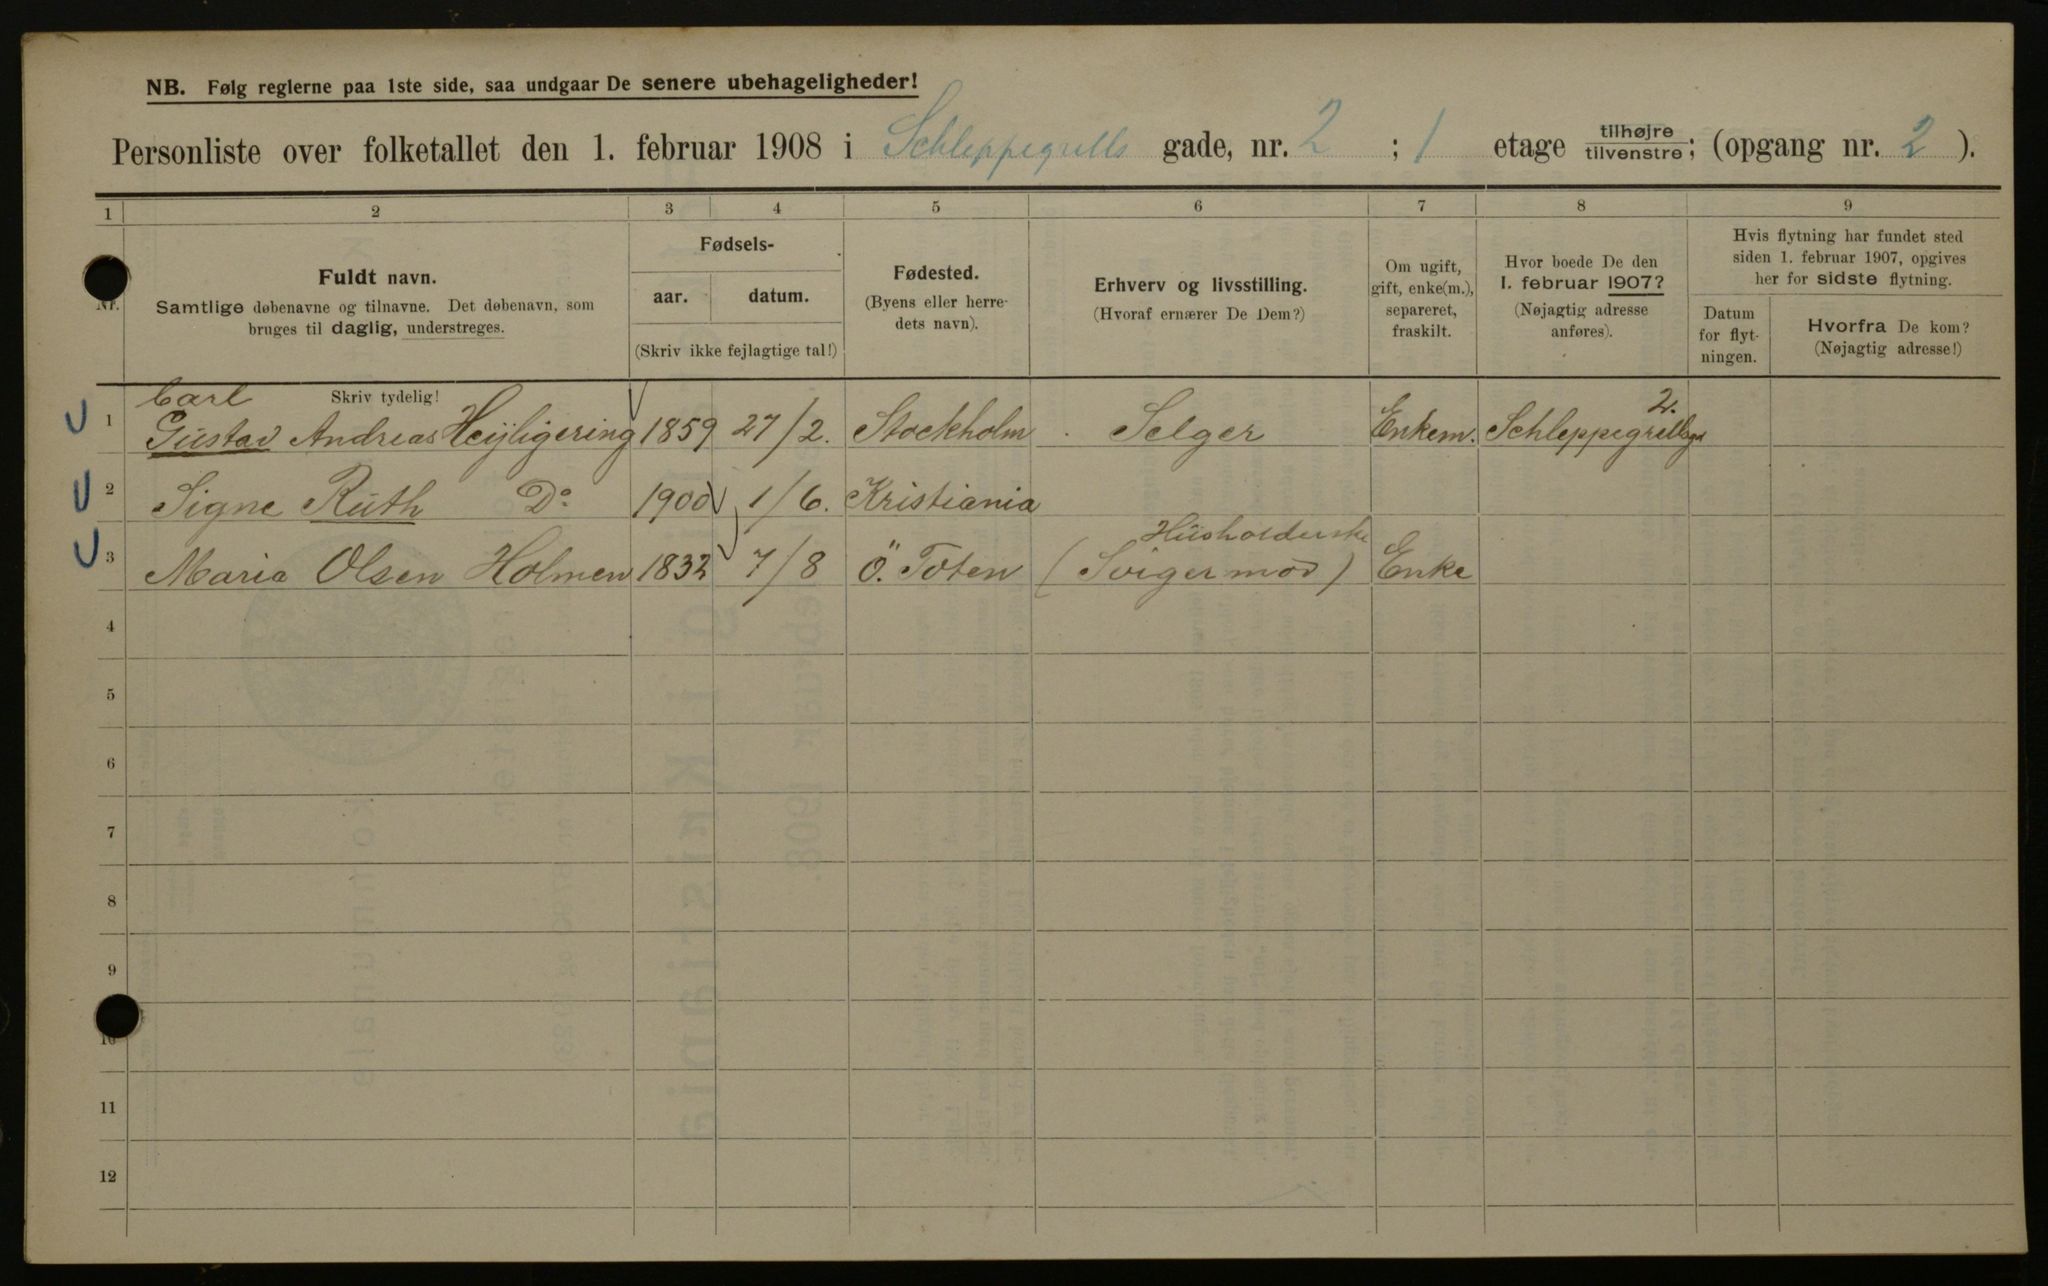 NB. Følg reglerne paa 1ste side, saa undgaar De senere ubehageligheder!
Personliste over folketallet den 1. februar 1908 i Schleppegrells gade, nr. 2 ; 1 etage tilhøjre/tilvenstre; (opgang nr. 2 ).
1 2 3 4 5 6 7 8 9
Nr.
Fuldt navn.
Samtlige døbenavne og tilnavne. Det døbenavn, som
bruges til daglig, understreges.
Fødsels-
aar. datum.
(Skriv ikke fejlagtige tal!)
Fødested.
(Byens eller herre-
dets navn).
Erhverv og livsstilling.
(Hvoraf ernærer De Dem?)
Om ugift,
gift, enke(m.),
separeret,
fraskilt.
Hvor boede De den
1. februar 1907?
(Nøjagtig adresse
anføres).
Hvis flytning har fundet sted
siden 1. februar 1907, opgives
her for sidste flytning.
Datum
for flyt-
ningen.
Hvorfra De kom?
(Nøjagtig adresse!)
Skriv tydelig!
Carl
1 Gustav Andreas Heijligering 1859 27/2. Stockholm Selger Enkem. Schleppegrellsgd 2.
2 Signe Ruth Do 1900 1/6. Kristiania
Husholderske
3 Maria Olsen Holmen 1832 7/8 Ö. Toten (Svigermod) Enke
4
5
6
7
8
9
10
11
12